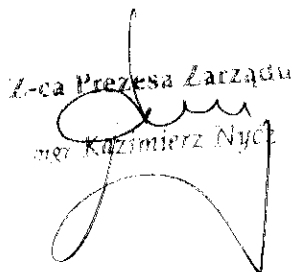 Z-ca Prezesa Zarządu
mgr Kazimierz Nycz